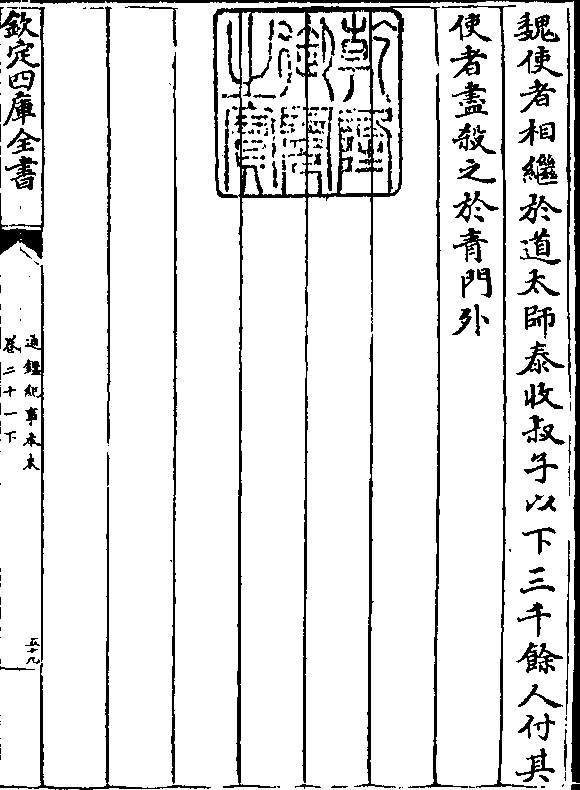 魏使者相繼於道太師泰收叔子以下三千餘人付其
使者盡殺之於青門外
乾隆御覽之寶
欽定四庫全書
通鑑紀事本末
卷二十一下
五十九